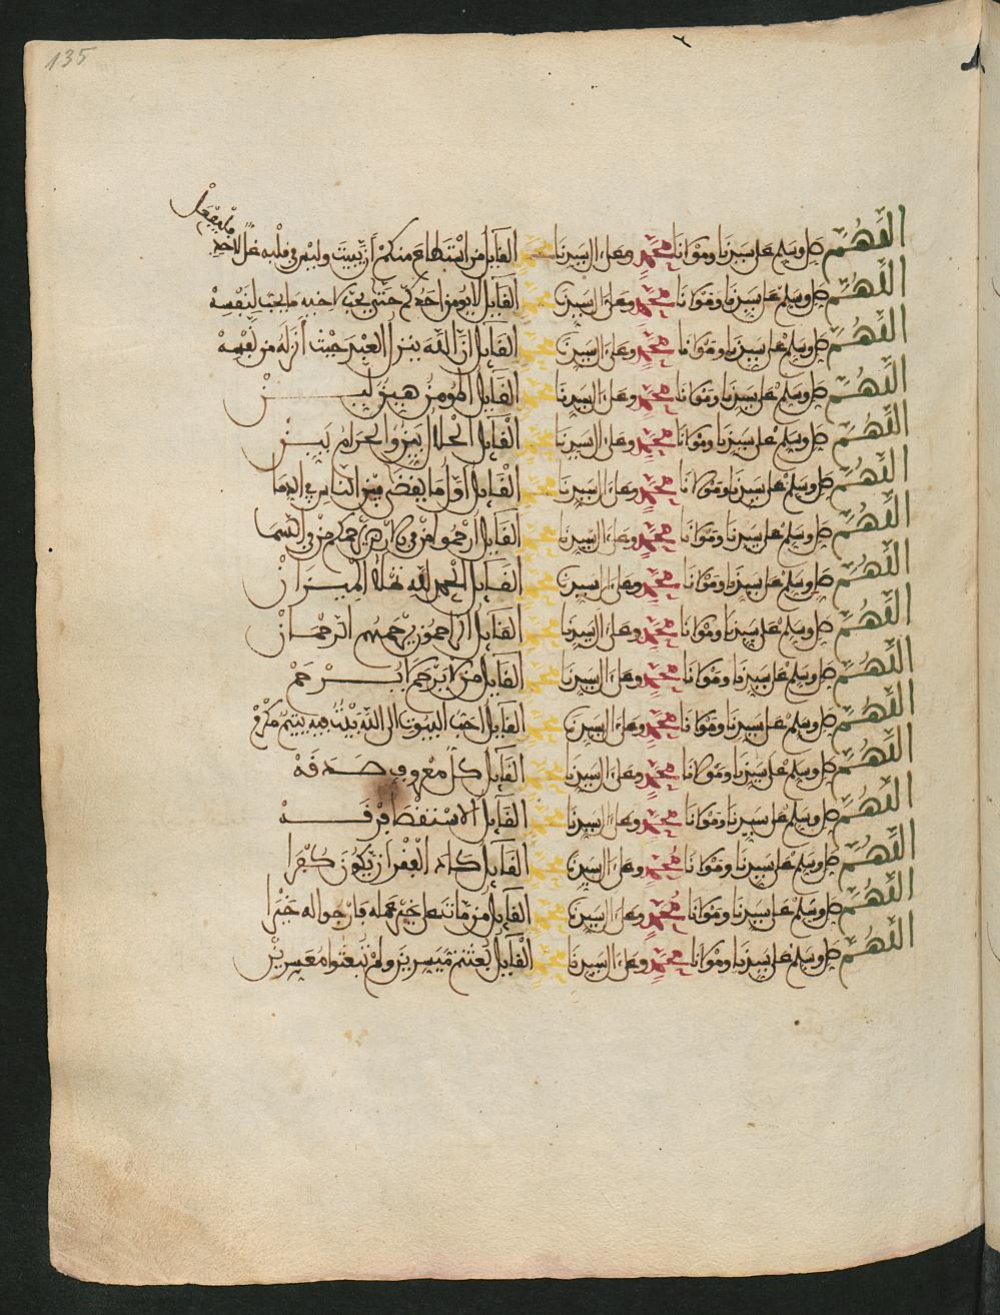 135
اللهم صل وسلم على سيدنا ومولانا محمد وعلى ءال سيدنا محمد القايل من استطاع منكم أن يبيت وليس في قلبه غل لأحد فليفعل
اللهم صل وسلم على سيدنا ومولانا محمد وعلى ءال سيدنا محمد القايل لا يومن احدكم حتى يحب لاخيه ما يحب لنفسه
اللهم صل وسلم على سيدنا ومولانا محمد وعلى ءال سيدنا محمد القايل ان الله ينزل العبد حيث أنزله من نفسه
اللهم صل وسلم على سيدنا ومولانا محمد وعلى ءال سيدنا محمد القايل المومن هين لين
اللهم صل وسلم على سيدنا ومولانا محمد وعلى ءال سيدنا محمد القايل الحلال بين والحرام بين
اللهم صل وسلم على سيدنا ومولانا محمد وعلى ءال سيدنا محمد القايل اول ما يقضى بين الناس في الدما
اللهم صل وسلم على سيدنا ومولانا محمد وعلى ءال سيدنا محمد القايل ارحموا من في الارض يرحمكم من في السما
اللهم صل وسلم على سيدنا ومولانا محمد وعلى ءال سيدنا محمد القايل الحمد لله تملأ الميزان
اللهم صل وسلم على سيدنا ومولانا محمد وعلى ءال سيدنا محمد القايل الراحمون يرحمهم الرحمان
اللهم صل وسلم على سيدنا ومولانا محمد وعلى ءال سيدنا محمد القايل من لا يرحم لا يرحم
اللهم صل وسلم على سيدنا ومولانا محمد وعلى ءال سيدنا محمد القايل احب البيوت الى الله بيت فيه يتيم مكرم
اللهم صل وسلم على سيدنا ومولانا محمد وعلى ءال سيدنا محمد القايل كل معروف صدقة
اللهم صل وسلم على سيدنا ومولانا محمد وعلى ءال سيدنا محمد القايل
اللهم صل وسلم على سيدنا ومولانا محمد وعلى ءال سيدنا محمد القايل كاد الفقر ان يكون كفرا
اللهم صل وسلم على سيدنا ومولانا محمد وعلى ءال سيدنا محمد القايل من مات على خير عمله فارجوا له خيرا
اللهم صل وسلم على سيدنا ومولانا محمد وعلى ءال سيدنا محمد القايل بعثتم ميسرين ولم تبعثوا معسرين